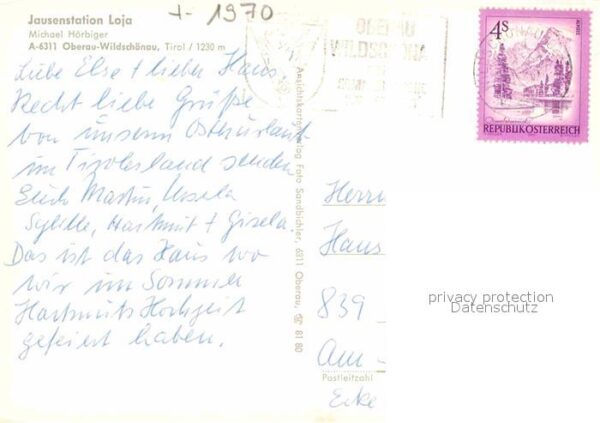 +- 1970
Jausenstation Loja
Michael Hörbiger
A-6311 Oberau-Wildschönau, Tirol / 1230 m
Liebe Else + lieber Hans,
Recht liebe Grüße
von unserm Osterurlaub
im Tirolerland senden
Euch Martin, Ursela
Sybille, Hartmut + Gisela.
Das ist das Haus wo
wir im Sommer
Hartmuts Hochzeit
gefeiert haben.
Ansichtskartenverlag Foto Sandbichler, 6311 Oberau, ☎ 81 80
OBERAU
WILDSCHÖNAU
4S
REPUBLIK ÖSTERREICH
Herrn
Hans
839
Am
Postleitzahl
Ecke
privacy protection
Datenschutz